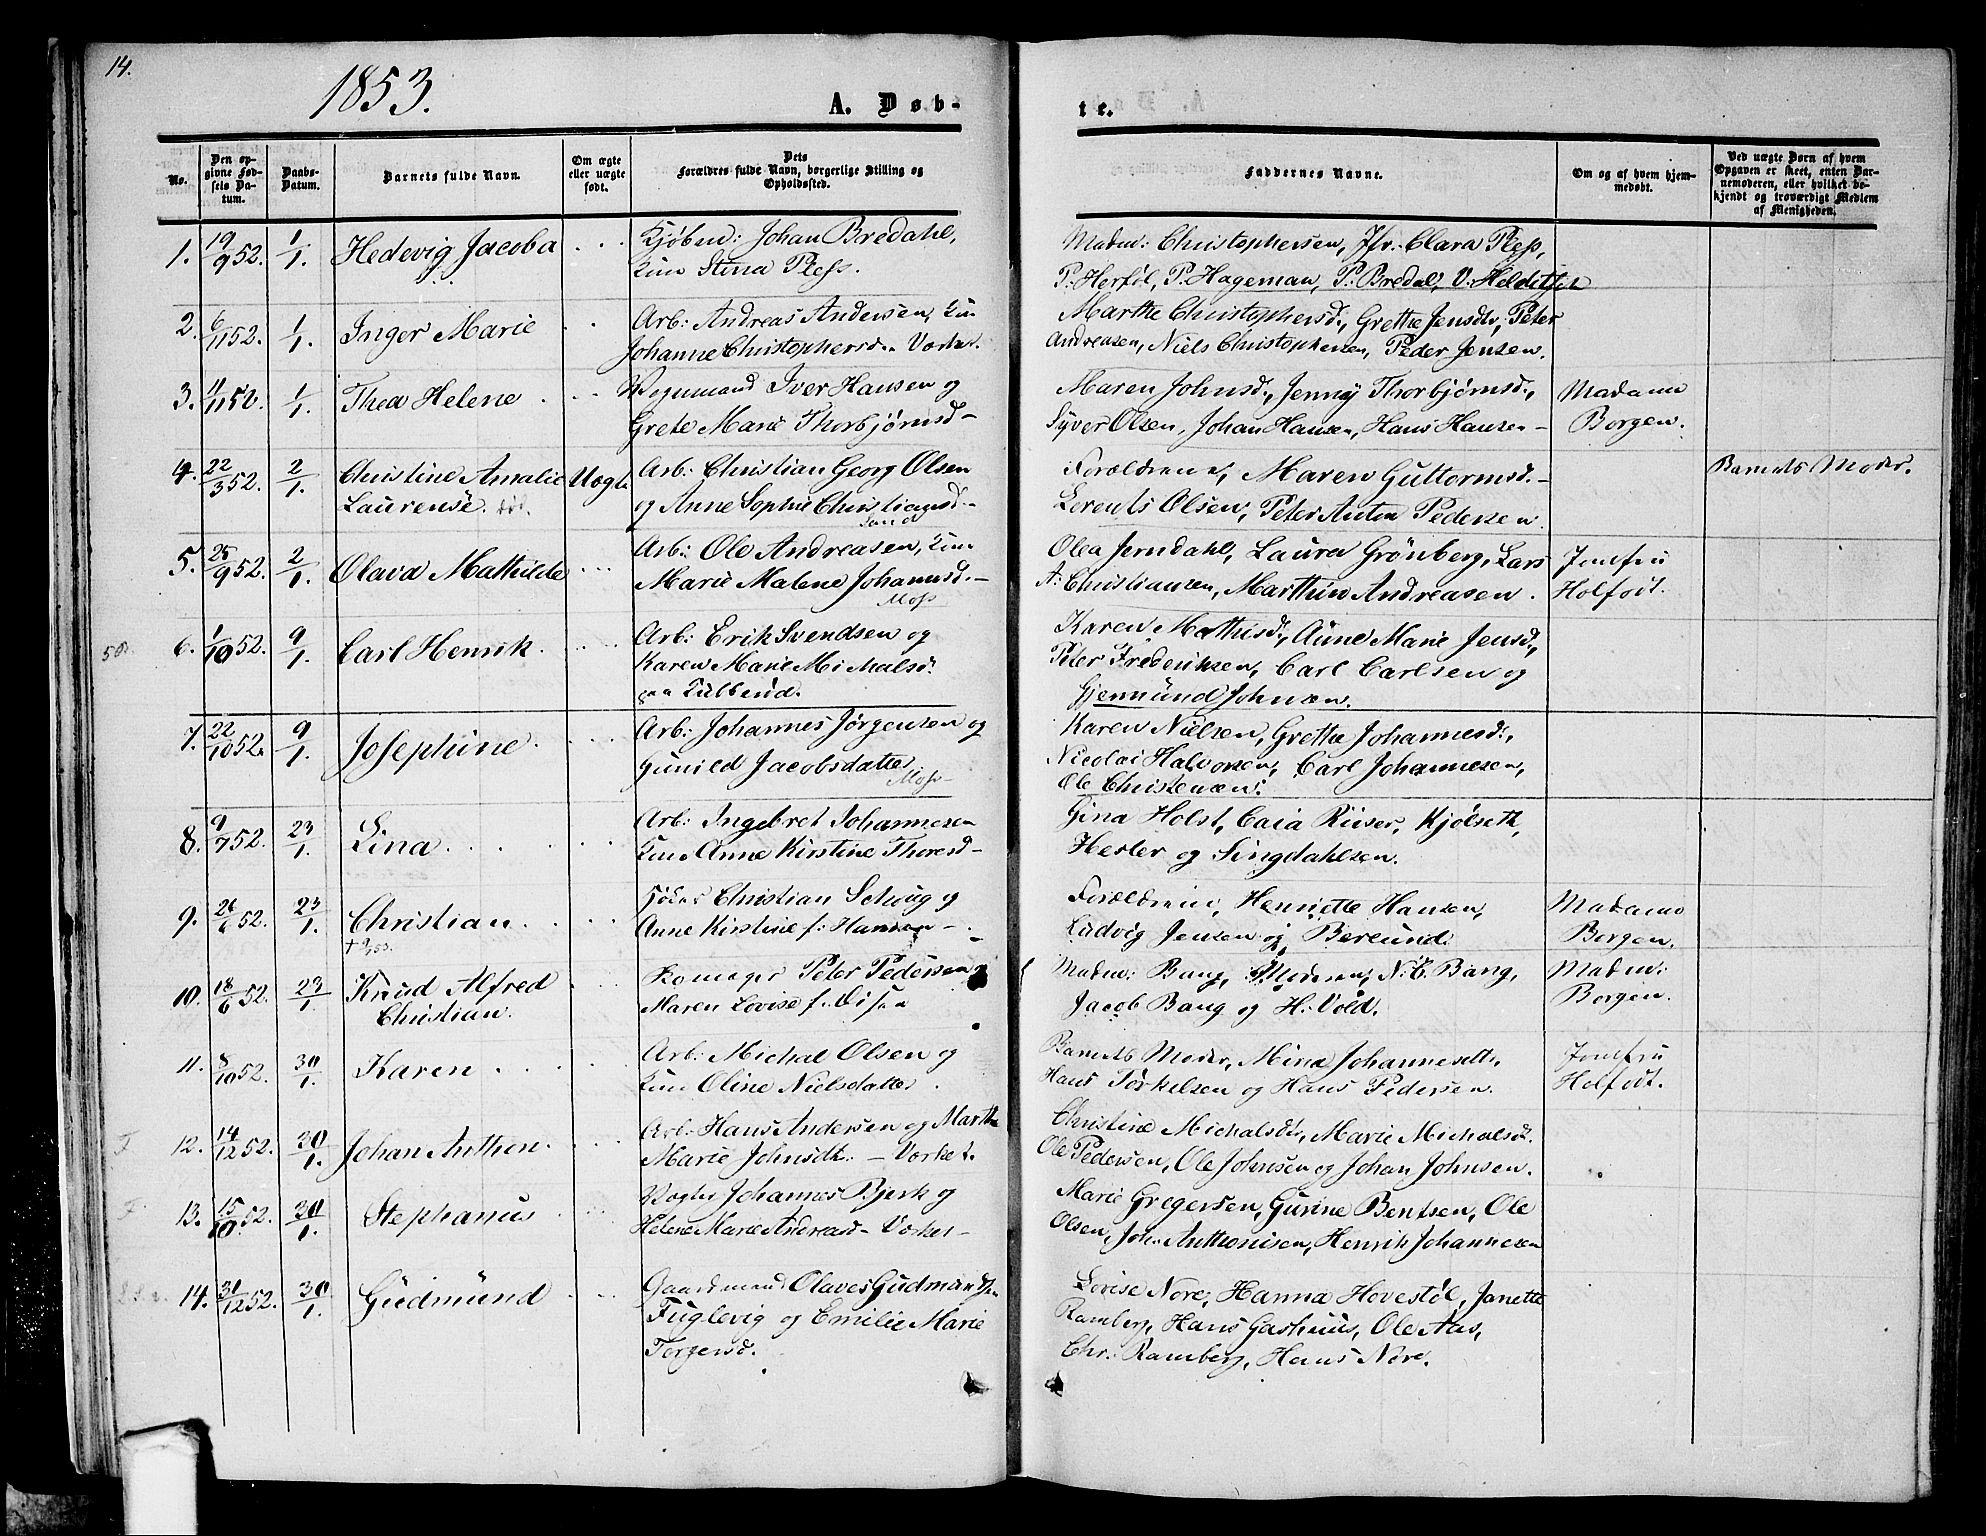 14.
1853.
A. Døb-
te.
No.
Den op-
givne Fød-
sels Da-
tum.
Daabs-
Datum.
Barnets fulde Navn.
Om ægte
eller uægte
født.
Dets
Forældres fulde Navn, borgerlige Stilling og
Opholdssted.
Faddernes Navne.
Om og af hvem hjem-
medøbt.
Ved uægte Børn af hvem
Opgaven er skeet, enten Bar-
nemoderen, eller hvilket be-
kjendt og troværdigt Medlem
af Menigheden.
1. 19/9 52. 1/1. Hedevig Jacoba . . . Kjøbm: Johan Bredahl,
Stina Pless.
Madm: Christophersen, Jfr. Clara Pless,
P: Herføl, P. Hageman, P. Bredal, V.
2. 6/11 52. 1/1. Inger Marie . . Arb: Andreas Andersen,
Johanne Christophersd. Værket.
Marthe Christophersd., Grethe Jensdtr, Peter
Andreasen, Niels Christophersen, Peder Jensen.
3. 11/11 52. 1/1. Thea Helene . . . . Vognmand Iver Hansen og
Grete Marie Thorbjørnsd –
Maren Johnsd., Jenny Thorbjørnsd.,
Syver Olsen, Johan Hansen, Hans Hansen –
Madame
Borgen.
4. 22/3 52. 2/1. Christine Amalie Uægte Arb: Christian Georg Olsen
Laurense. død. og Anne Sophie Christiansd. –
Sand
Forældrene, Maren Guttormsd. –
Lorents Olsen, Peter Anton Pedersen.
Barnets Moder.
5. 25/9 52. 2/1. Olava Mathilde . . . Arb: Ole Andreasen,
Marie Malene Johannsd. –
Moss
Olea Jerndahl, Laura Grønberg, Lars
A: Christiansen, Marthin Andreasen.
Jomfru
Holfodt.
6. 1/10 52. 9/1. Carl Henrik . . . . Arb: Erik Svendsen og
Karen Marie
paa
Karen Mathisd., Anne Marie Jensd.,
Peter Frederiksen, Carl Carlsen og
Gjermund Johnsen.
7. 22/10 52. 9/1. Josephine . . . . Arb: Johannes Jørgensen og
Gunild Jacobsdatter
Moss –
Karen Nielsen, Grethe Johannesd.,
Nicolai Halvorsen, Carl Johannesen,
Ole Christensen.
8. 9/7 52. 23/1. Lina . . . . . . . Arb: Ingebret Johannesen
Anne Kirstine Thoresd –
Gina Holst, Caia Riiser, Kjølseth,
Hesler og Singdahlsen.
9. 26/ 52. 23/1. Christian . . . . . Christian Schoug og
Anne Kirstine f: Hansen – .
Forældrene, Henriette Hansen,
Ludvig Jensen og Berlund.
Madame
Borgen.
10. 18/6 52. 23/1. Knud Alfred
Christian. Peter Pedersen og
Maren Lovise f.
Madm: Bang, Moderen, N. E. Bang,
Jacob Bang og H. Vold.
Madm:
Borgen.
11. 8/10 52. 30/1. Karen . . . . . . . Arb: Michal Olsen og
Oline Nielsdatter .
Barnets Moder, Mina Johannesdtr,
Hans Torkelsen og Hans Pedersen.
Jomfru
Holfodt.
12. 14/12 52. 30/1. Johan Anthon. . . . Arb: Hans Andersen og Marthe
Marie Johnsdt: – Værket.
Christine Michalsdt, Marie Michalsdt.
Ole Pedersen, Ole Johnsen og Johan Johnsen.
13. 15/10. 52. 30/1. Stephanus . . . Vogter Johannes Bjerk og
Helene Marie Andreasd – Værket –
Marie Gregersen, Gurine Bentsen, Ole
Olsen, Joh: Anthonisen, Henrik Johannesen
14. 31/12 52. 30/1. Gudmund . . . Gaardmand Olaves Gudmandsen
Fuglevig og Emilie Marie
Torgersd.
Lovise Nore, Hanna Hovestøl, Janette
Ramberg, Hans Gashuus, Ole Aas,
Chr: Ramberg, Hans Nore.